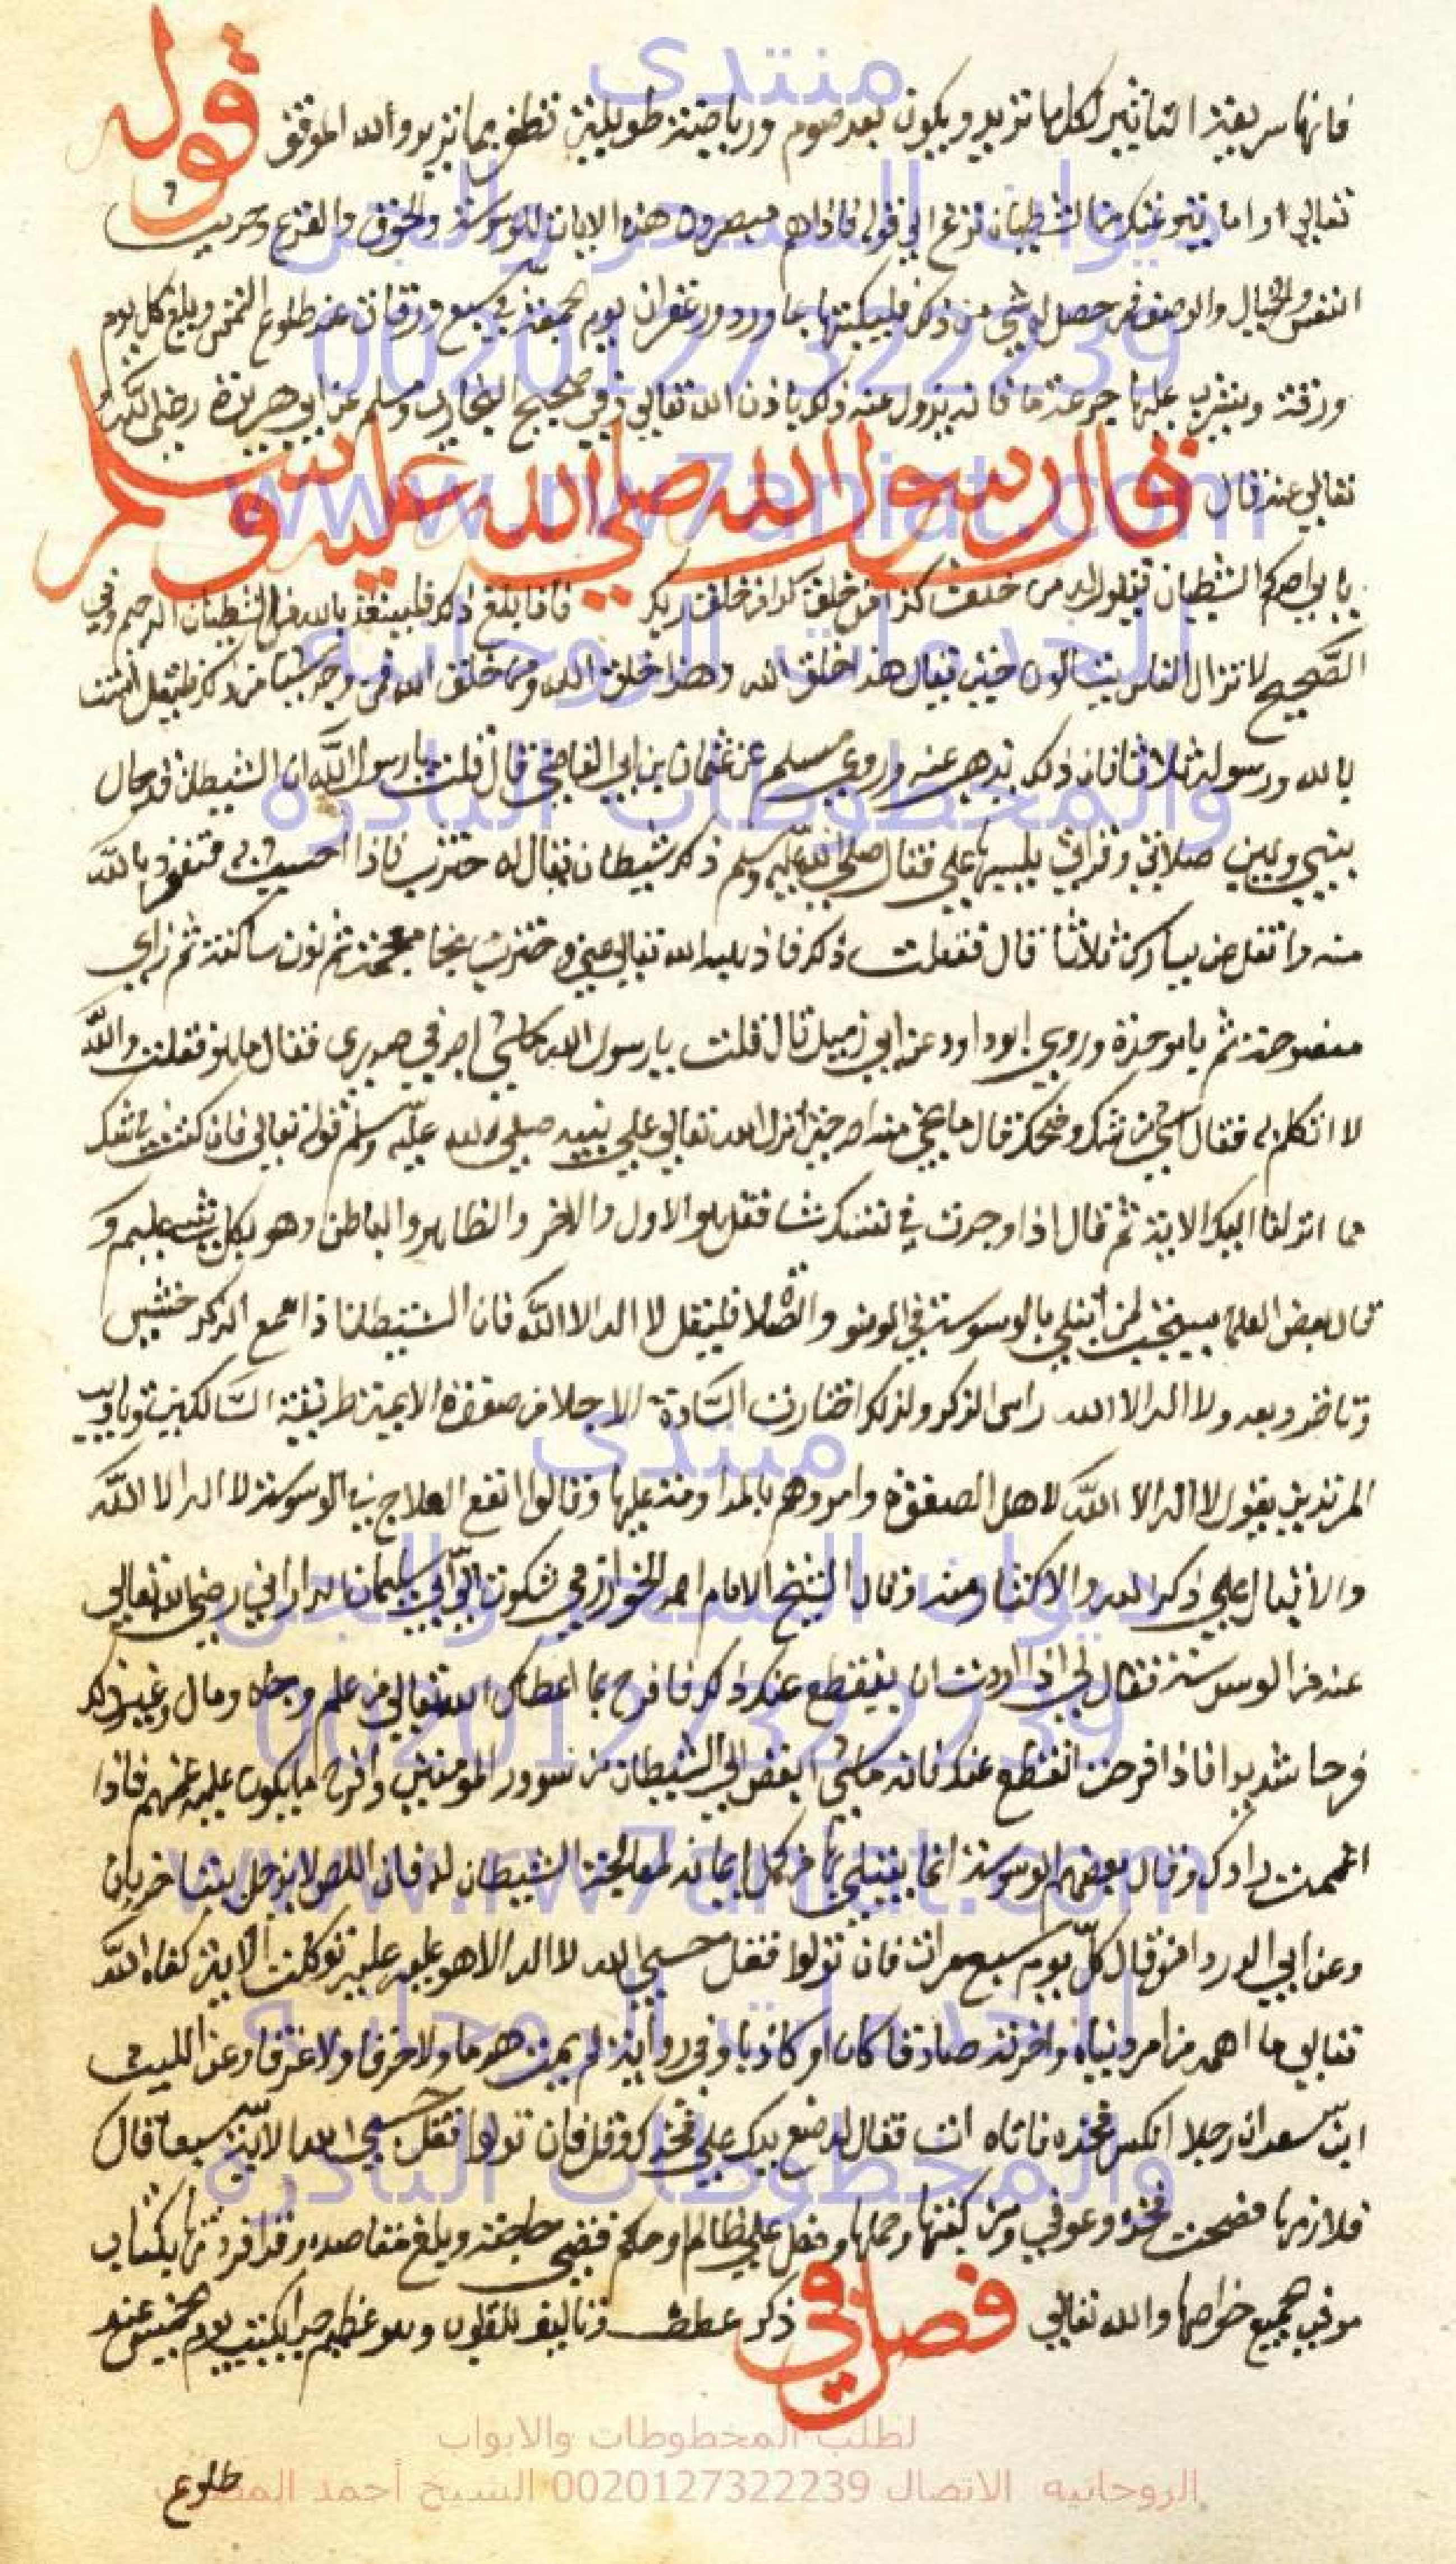 فانها سريعة التاثير لكل ما تريد ويكون بعد صوم ورياضة طويلة تظفر بما تريد والله الموفق قوله
تعالي واما ينزغنك من الشيطان نزغ الي قوله فاذا هم مبصرون هذه الايات للوسوسة والخوف والفزع وحديث
النفس والخيال والرجف فمن حصل له شي من ذلك فليكتبها بماورد وزعفران يوم الجمعة في سبع ورقات عند طلوع الشمس ويبلع كل يوم
ورقة ويشرب عليها جرعة ما فانه يزول عنه ذلك باذن الله تعالي وفي صحيح البخاري ومسلم عن ابي هريرة رضي الله
تعالي عنه قال قال رسول الله صلي الله عليه وسلم
ياتي احدكم الشيطان فيقول له من خلق كذا من خلق كذا من خلق ربك فاذا بلغ ذلك فليستعذ بالله من الشيطان الرجيم وفي
الصحيح لا تزال الناس يتسالون حتي يقال هذا خلق الله وهذا خلق الله ومن خلق الله فمن وجد شيا من ذلك فليقل امنت
بالله ورسوله ثلاثا فان ذلك يذهب عنه وروي مسلم عن عثمان بن ابي العاصي قال قلت يا رسول الله ان الشيطان قد حال
بيني وبين صلاتي وقراتي يلبسها علي فقال صلي الله عليه وسلم ذلك شيطان يقال له خنزب فاذا احسيت به فتعوذ بالله
منه واتفل عن يسارك ثلاثا قال ففعلت ذلك فاذهبه الله تعالي عني وخنزب بخا معجمة ثم نون ساكنة ثم زاي
مفتوحة ثم با موحدة وروي ابو داود عن ابي زميل قال قلت يا رسول الله ما شي اجد في صدري فقال ما هو فقلت والله
لا اتكلم به فقال شي من شك وضحك قال ما نجي منه احد حتي انزل الله تعالي علي نبيه صلي الله عليه وسلم قوله تعالي فان كنت في شك
مما انزلنا اليك الاية ثم قال اذا وجدت في نفسك شيا فقل هو الاول والاخر والظاهر والباطن وهو بكل شي عليم و
قال بعض العلما يستحب لمن ابتلي بالوسوسة في الوضو والصلا فليقل لا اله الا الله فان الشيطان اذا سمع الذكر خنس
وتاخر وبعد ولا اله الا الله راس الذكر ولذلك اختارت السادة الاجلا من صفوة الايمة طريقة السالكين وتاديب
المريدين بقول لا اله الا الله لاهل الصفوة وامروهم بالمداومة عليها وقالوا انفع العلاج في الوسوسة لا اله الا الله
والاقبال علي ذكر الله والاكثار منه وقال الشيخ الامام احمد الخوارزمي شكوت الي ابي سليمان الداراني رضي الله تعالي
عنه من الوسوسة فقال لي اذا اردت ان ينقطع عنك ذلك فافرح بما اعطاك الله تعالي من علم وجاه ومال وغير ذلك
فرحا شديدا فاذا فرحت انقطع عنك فانه ما شي ابغض الي الشيطان من سرور المومنين وافرح ما يكون عليه غمهم فاذا
اغممت زادك وقال بعضهم الوسوسة انما يبتلي بها من كمل ايمانه لمعالجة الشيطان له فان اللص لا يدخل بيتا خربان
وعن ابي الدردا من قال كل يوم سبع مرات فان تولوا فقل حسبي الله لا اله الا هو عليه توكلت الاية كفاه الله
تعالي ما اهمه من امر دنياه واخرته صادقا كان او كاذبا وفي رواية لم يمت هدما ولا حرقا ولا غرقا وعن الليث
ابن سعد ان رجلا انكسر فخذه فاتاه ات فقال له ضع يدك علي فخذك وقل فان تولوا فقل حسبي الله الاية سبعا قال
فلازمها فصحت فخذه وعوفي ومن كتبها وحملها ودخل علي ظالم او حاكم قضي حاجته وبلغ مقاصده وقد افردتها بكتاب
موفيه جميع خواصها والله تعالي فصل في ذكر عطف وتاليف للقلوب وهو عظيم جدا يكتب يوم خميس عند
طلوع
منتدى
ديوان السحر والجن
0020127322239
www.rw7aniat.com
للخدمات الروحانيه
والمخطوطات النادرة
منتدى
ديوان السحر والجن
0020127322239
www.rw7aniat.com
للخدمات الروحانيه
والمخطوطات النادرة
لطلب المخطوطات والابواب
الروحانيه الاتصال 0020127322239 الشيخ أحمد